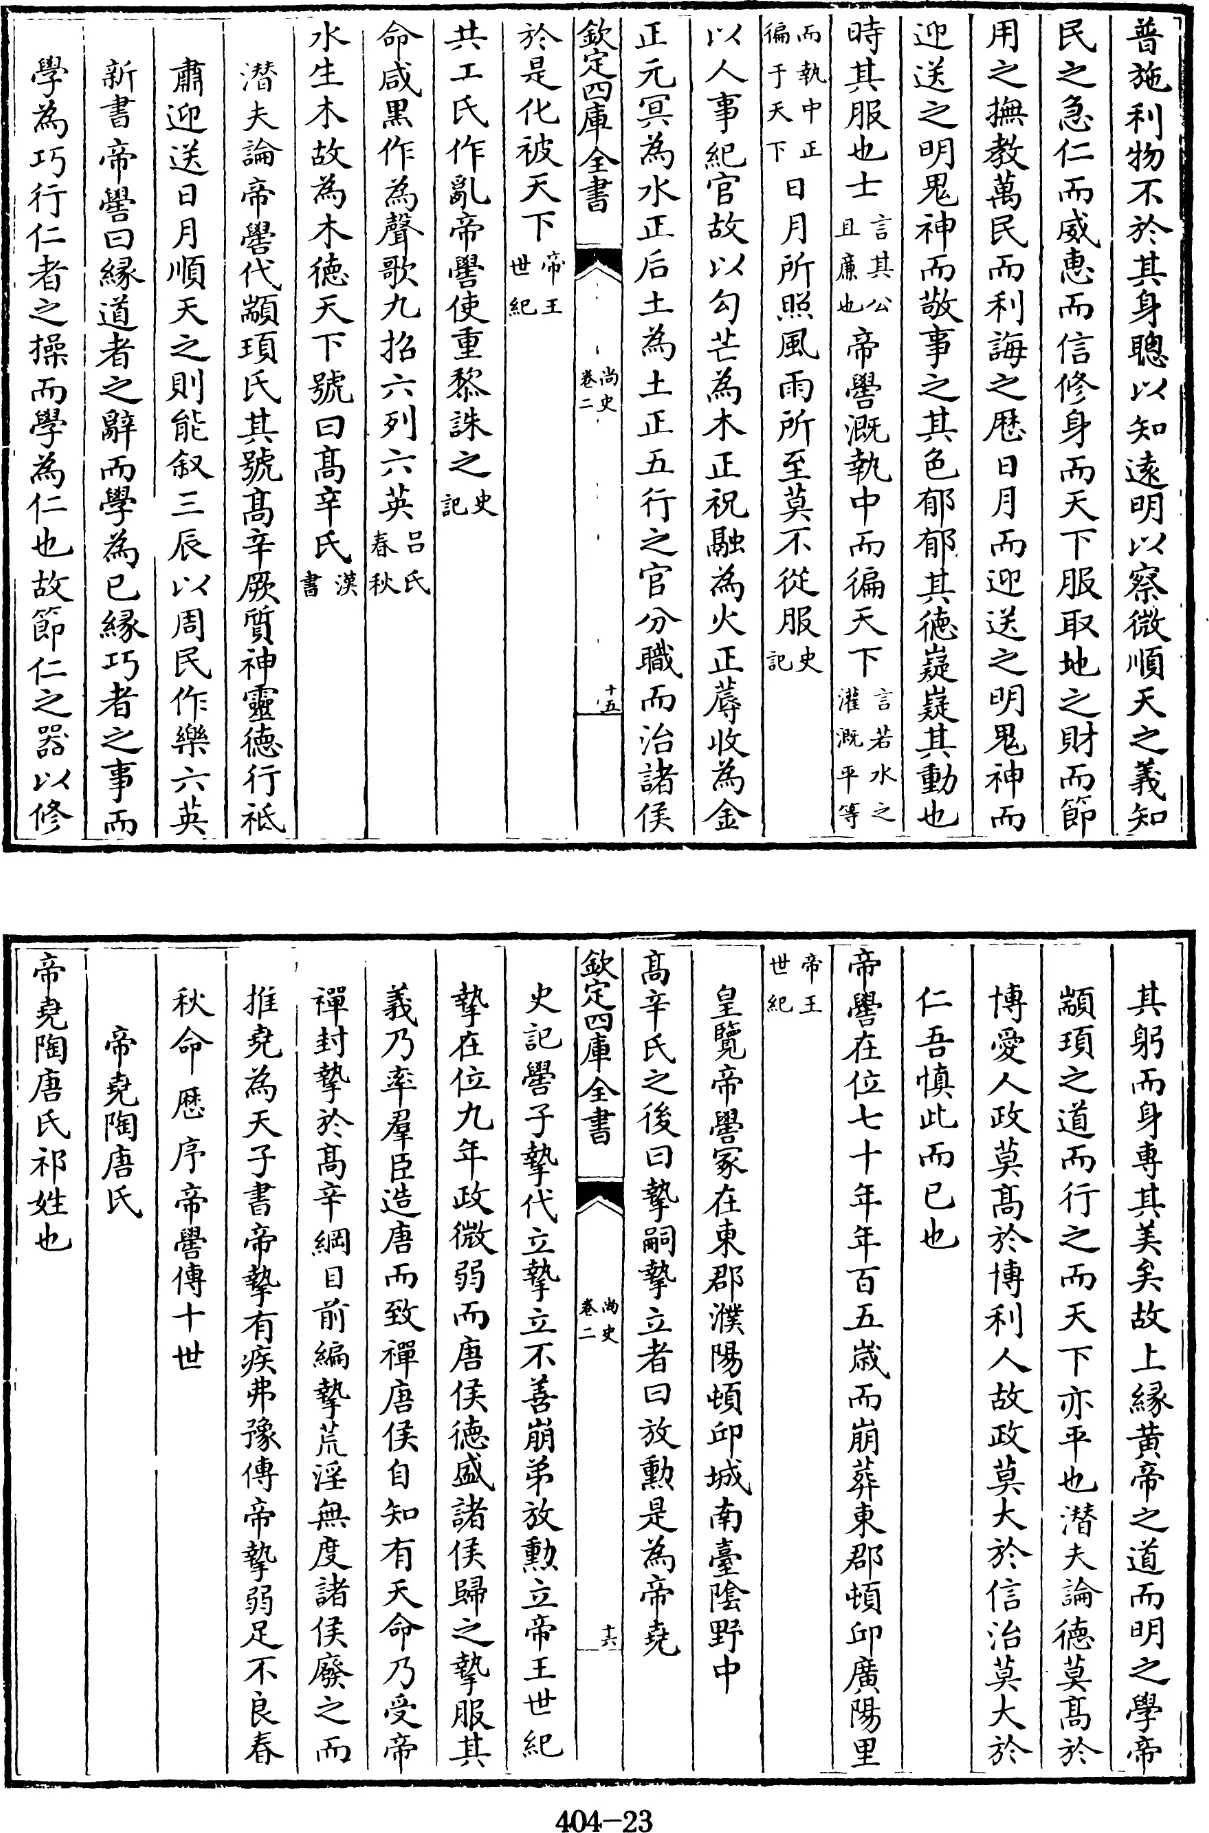 普施利物不於其身聰以知遠明以察微順天之義知
民之急仁而威惠而信修身而天下服取地之財而節
用之撫教萬民而利誨之歷日月而迎送之明鬼神而
迎送之明鬼神而敬事之其色郁郁其德嶷嶷其動也
時其服也士言其公且廉也帝嚳溉執中而徧天下言若水之灌溉平等
而執中正徧于天下日月所照風雨所至莫不從服史記
以人事紀官故以勾芒為木正祝融為火正蓐收為金
正元冥為水正后土為土正五行之官分職而治諸侯
欽定四庫全書 尚史卷二 十五
於是化被天下帝王世紀
共工氏作亂帝嚳使重黎誅之史記
命咸黑作為聲歌九招六列六英呂氏春秋
水生木故為木德天下號曰髙辛氏漢書
潜夫論帝嚳代顓頊氏其號髙辛厥質神靈德行祗
肅迎送日月順天之則能叙三辰以周民作樂六英
新書帝嚳曰緣道者之辭而學為已緣巧者之事而
學為巧行仁者之操而學為仁也故節仁之器以修
其躬而身專其美矣故上緣黃帝之道而明之學帝
顓頊之道而行之而天下亦平也潜夫論德莫髙於
博愛人政莫髙於博利人故政莫大於信治莫大於
仁吾慎此而已也
帝嚳在位七十年年百五歲而崩葬東郡頓邱廣陽里
帝王世紀
皇覽帝嚳冢在東郡濮陽頓邱城南臺陰野中
髙辛氏之後曰摯嗣摯立者曰放勲是為帝堯
欽定四庫全書 尚史卷二 十六
史記嚳子摯代立摯立不善崩弟放勲立帝王世紀
摯在位九年政微弱而唐侯德盛諸侯歸之摯服其
義乃率羣臣造唐而致禪唐侯自知有天命乃受帝
禪封摯於髙辛綱目前編摯荒淫無度諸侯廢之而
推堯為天子書帝摯有疾弗豫傳帝摯弱足不良春
秋命歷序帝嚳傳十世
帝堯陶唐氏
帝堯陶唐氏祁姓也
404-23